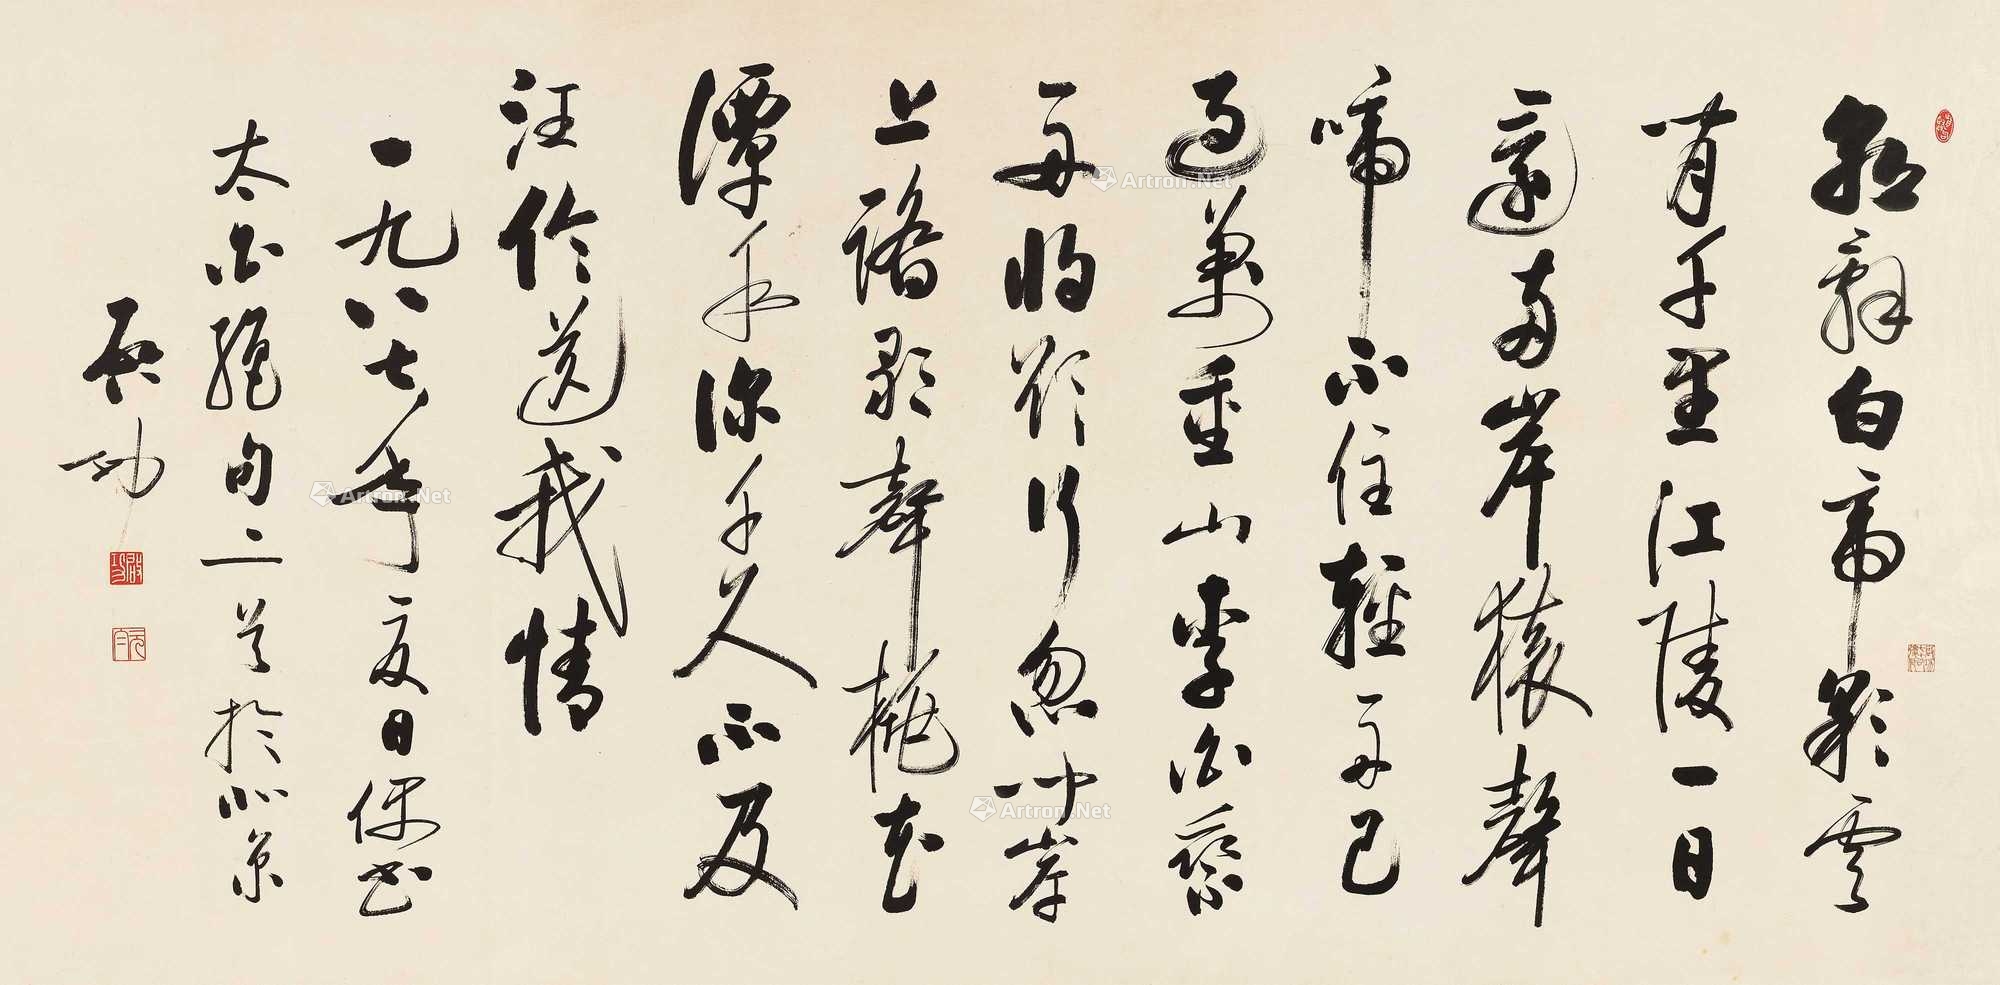 朝辞白帝彩雲
間千里江陵一日
還兩岸猿聲
啼不住輕舟已
過萬重山李白乘
舟將欲行忽聞岸
上踏歌聲桃花
潭水深千尺不及
汪倫送我情
一九八七年夏日偶書
太白絕句二首於北京
啟功
Artron.Net
Artron.Net
Artron.Net